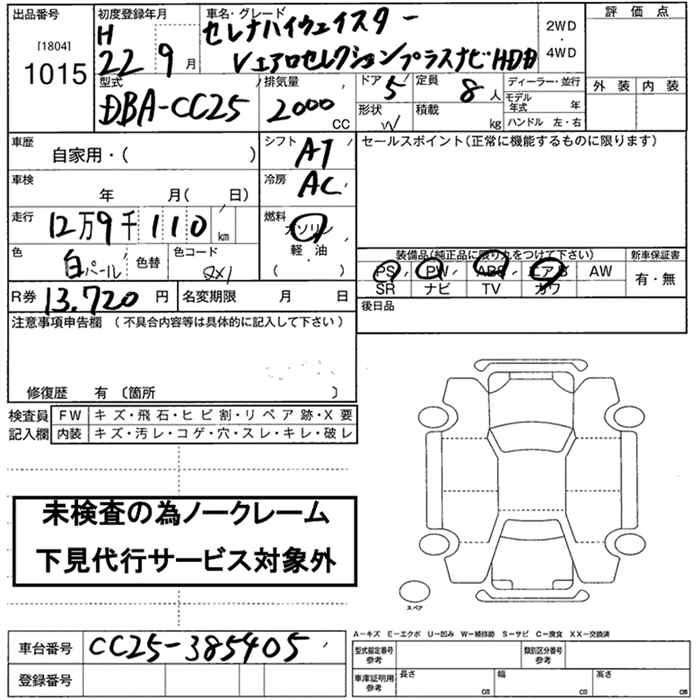 出品番号 初度登録年月 車名・グレード 評価点
[1804] H セレナハイウェイスター 2WD
1015 22 9 月 Vエアロセレクションプラスナビ HDD ・ 4WD
型式 排気量 ドア 5 定員 8 人 ディーラー・並行 外装 内装
DBA-CC25 2000 CC 形状 W 積載 kg モデル年式 年
ハンドル 左・右
車歴 シフト セールスポイント(正常に機能するものに限ります)
自家用・( ) AT
車検 冷房
年 月( 日) AC
走行 燃料
12万9千110 km ガソリン
色 色替 色コード 軽油 装備品(純正品に限り丸をつけて下さい) 新車保証書
白パール QX1 ( ) PS PW ABS エアB AW 有・無
R券 13,720 円 名変期限 月 日 SR ナビ TV カワ
注意事項申告欄 (不具合内容等は具体的に記入して下さい) 後日品
修復歴 有 〔箇所 〕
検査員 FW キズ・飛石・ヒビ割・リペア跡・X要
記入欄 内装 キズ・汚レ・コゲ・穴・スレ・キレ・破レ
未検査の為ノークレーム
下見代行サービス対象外
スペア
A－キズ E－エクボ U－凹み W－補修跡 S－サビ C－腐食 XX－交換済
車台番号 CC25-385405 型式指定番号 参考 類別区分番号 参考
登録番号 車庫証明用 参考 長さ cm 幅 cm 高さ cm